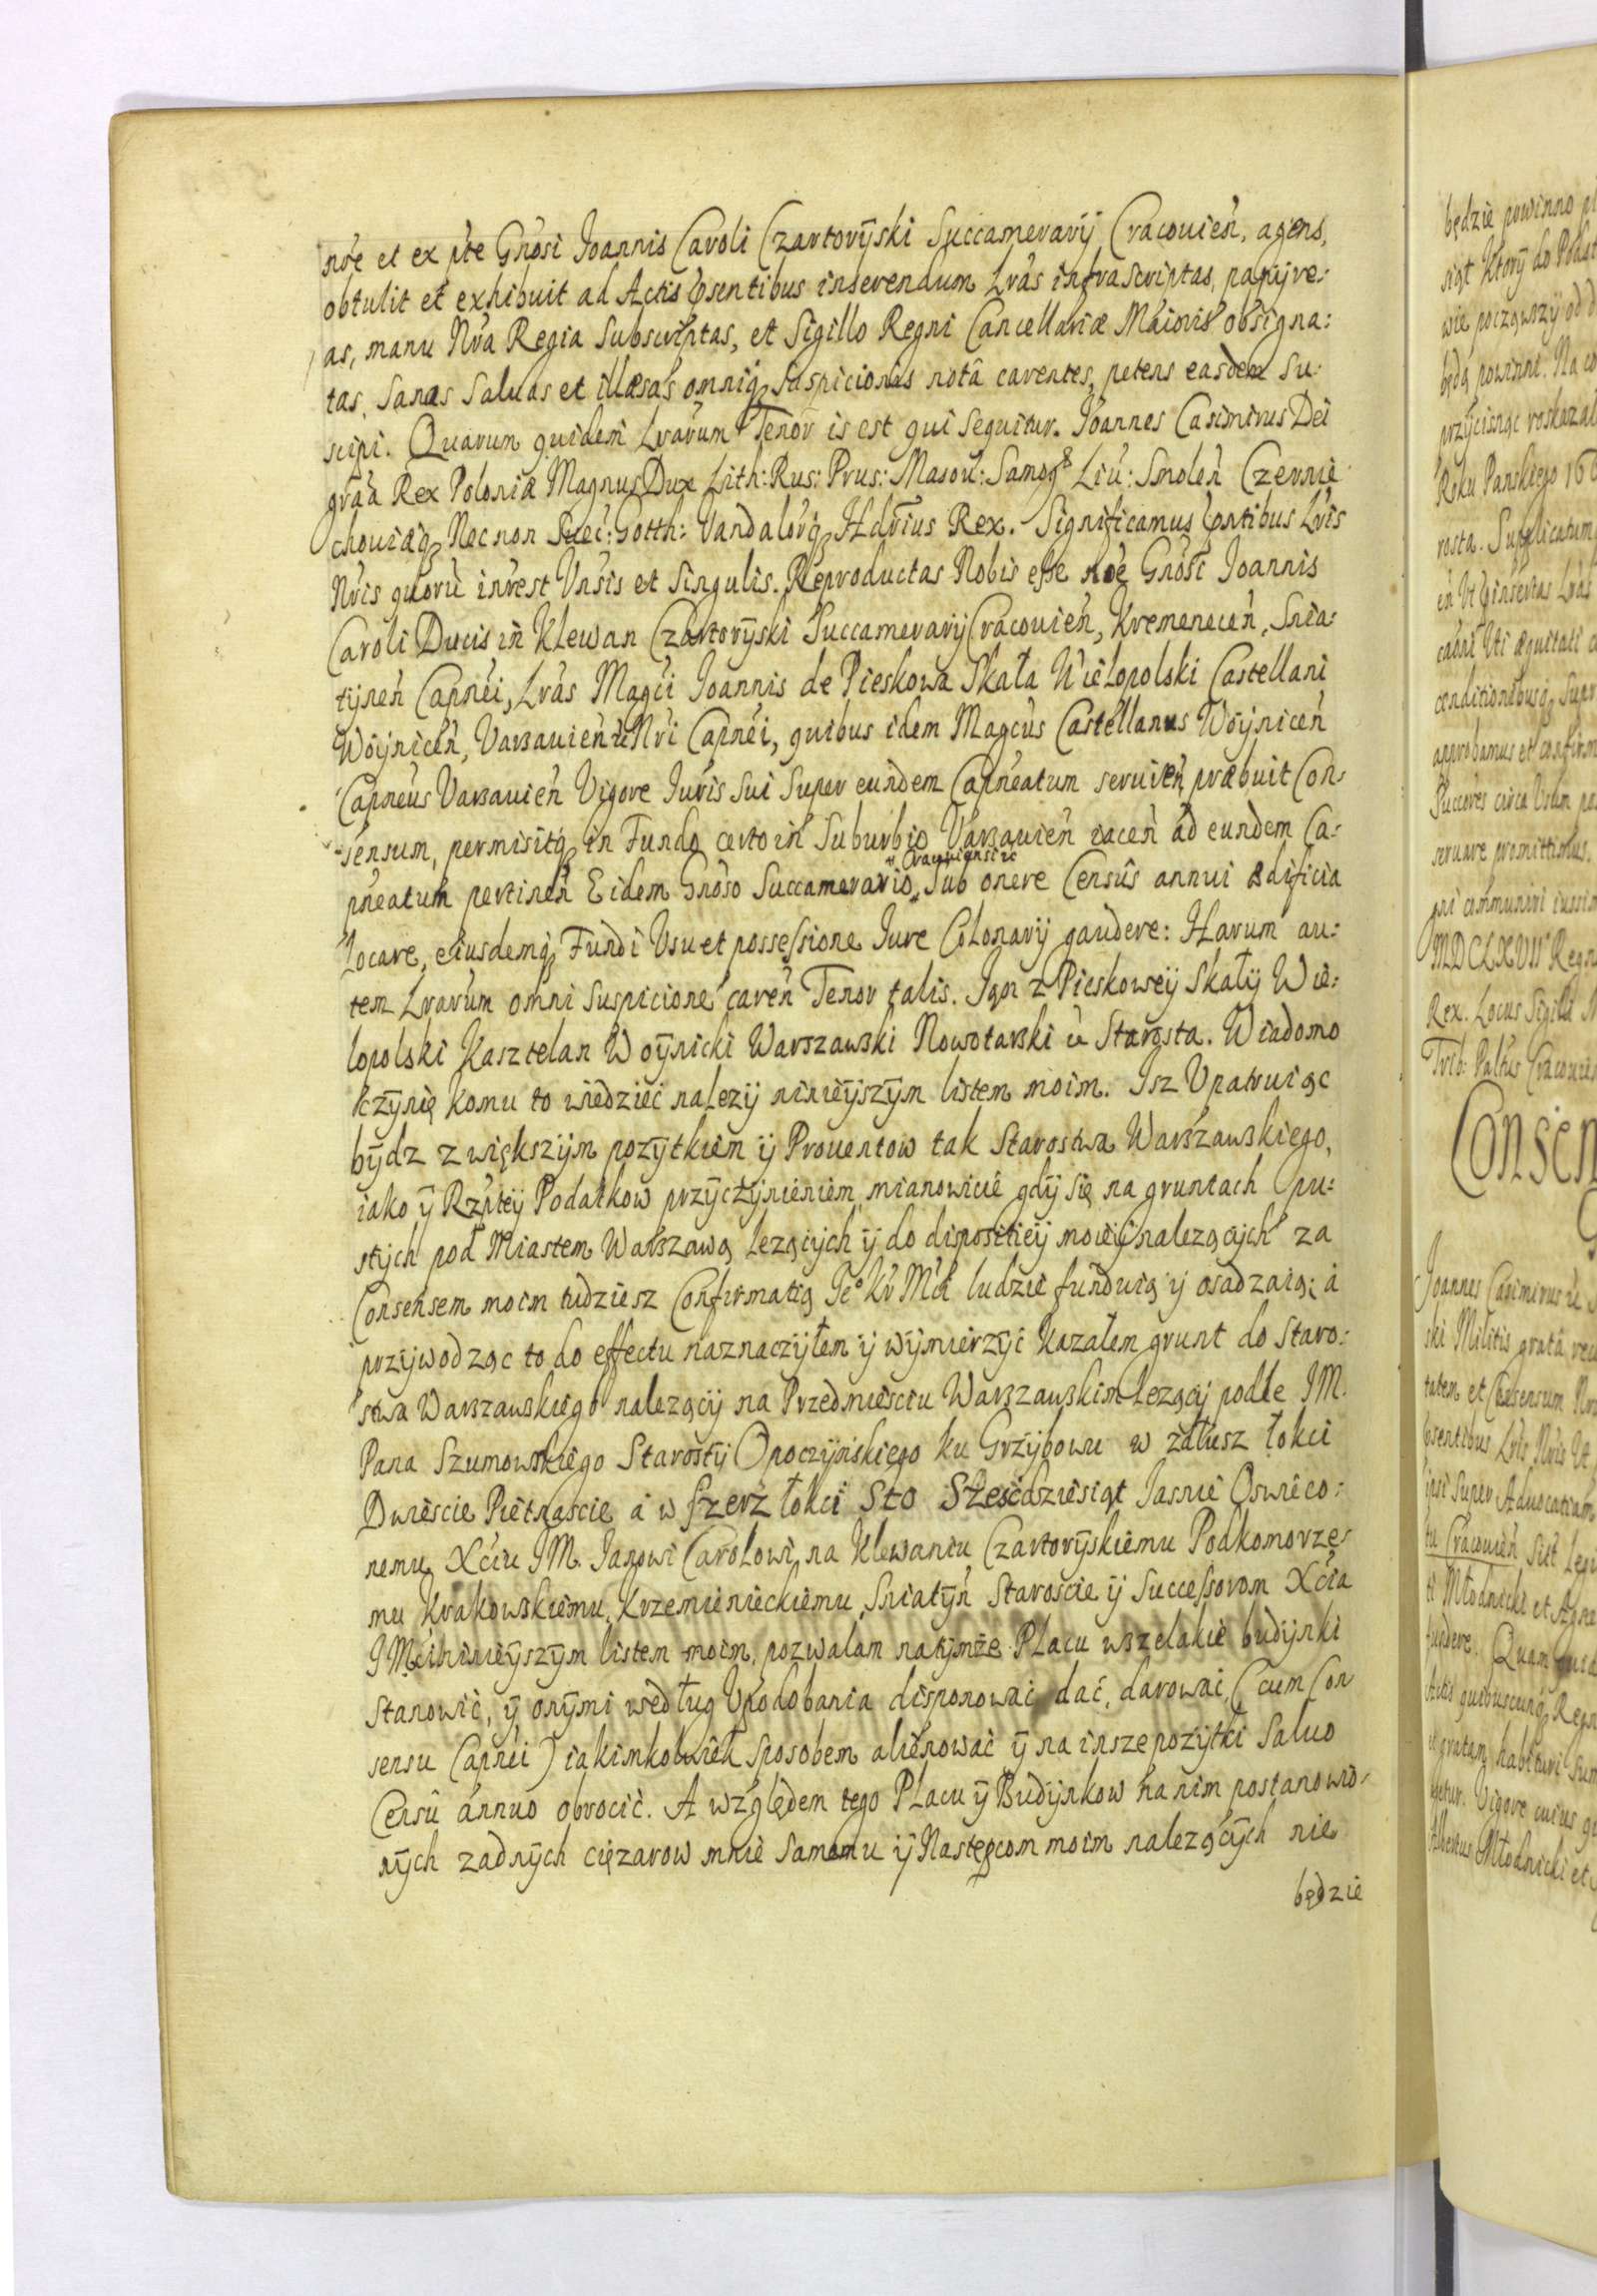 nõe et ex pte Gnosi Joannis Caroli Czartorÿski Succamerarÿ Cracouień, agens,
obtulit et exhibuit ad Actis Psentibus inserendum Lras infrascriptas, papÿre:
as, manu Nra Regia Subscriptas, et Sigillo Regni Cancellariæ Maioris obsigna:
tas, Sanas Saluas et illæsas omniq Suspicionis notâ carentes, petens easdem Su:
scipi. Quarum quidem Lrarum Tenor is est qui Sequitur. Joannes Casimirus Dei
graa Rex Poloniæ Magnus Dux Lith: Rus: Prus: Masou: Samog: Liu: Smoleń Czernie
chouiæq Nec non Suec: Gotth: Vandalorq Hdrius Rex. Significamus Pntibus Lris
Nris quoru inrest Vnsis et Singulis. Reproductas Nobis esse nõe Gnosi Joannis
Caroli Ducis in Klewan Czartorÿski Succamerarÿ Cracouień, Kremeneceń, Snia:
tÿneń Capnei, Lras Magci Joannis de Pieskowa Skała Wielopolski Castellani
Woÿniceń, Varsauień ut Nri Capnei, quibus idem Magcus Castellanus Woÿniceń
Capneus Varsauień Vigore Juris Sui Super eundem Capneatum seruień præbuit Con:
sensum, permisitq in Fundo certo in Suburbio Varsauień iaceń ad eundem Ca:
pneatum pertineń Eidem Gnoso Succamerario Sub onere Censûs annui ædificia
Cracouiensi ut
Locare, eiusdemq Fundi Vsu et possessione Jure Colonarÿ gaudere: Harum au:
tem Lrarum omni suspicione careń Tenor talis. Jan z Pieskoweÿ Skałÿ Wie:
lopolski Kasztelan Woÿnicki Warszawski Nowotarski ut Starosta. Wiadomo
czÿnię komu to wiedzieć nalezÿ ninieÿszÿm listem moim. Jsz Vpatruiąc
bÿdz z większÿm pozÿtkiem ÿ Prouentow tak Starostwa Warszawskiego,
iako ÿ Rzpteÿ Podatkow przÿczÿnieniem, mianowicie gdÿ się na gruntach pu:
stÿch pod Miastem Warszawą lezącÿch ÿ do dispositieÿ moieÿ nalezącÿch za
Consensem moim tudziesz Confirmatią Je° Kr Mci ludzie funduią ÿ osadzaią; á
przÿwodząc to do effectu naznaczÿłem ÿ wÿmierzÿć kazałem grunt do Staro:
stwa Warszawskiego nalezącÿ na Przedmiesciu Warszawskim lezącÿ podle JM.
Pana Szumowskiego Starostÿ Opoczÿńskiego ku Grzÿbowu w załusz łokci
Dwiescie Pietnascie á w szerz łokci Sto Szescdziesiąt Jasnie Oswieco:
nemu Xciu JM. Janowi Carolowi na Klewaniu Czartorÿskiemu Podkomorze:
mu Krakowskiemu, Krzemienieckiemu, Sniatÿń Staroscie ÿ Successorom Xcia
JMci ninieÿszÿm listem moim, pozwalam na tÿmze Placu wszelakie budÿnki
stanowić, ÿ onÿmi według Vpodobania disponować dać, darować, (cum Con
sensu Capnei) iakimkolwiek sposobem alienować ÿ na insze pozÿtki Saluo
Censû annuo obrocić. A względem tego Placu ÿ Budÿnkow na nim postanowio:
nÿch zadnÿch cięzarow mnie Samemu ÿ Następcom moim nalezącÿch nie
będzie
będzie powinno
siąt Ktorÿ do
wie począwszÿ od
będą powinni. Na
przÿcisnąc roskazał
Roku Panskiego
rosta. Supplicatum
æquitati
conditionibusq Super
approbamus et confirm
Succores circa Vsum
seruare promittimus.
gni communiri iussim
MDCLXVII Regn
Rex. Locus Sigilli
Cracouien
Consen
Joannes Casimirus ut
ski Militis grata
tatem et Consensum
Psentibus Lris Nris Vt
ipsi Super Aduocatiam
tu Cracouień Siue
ti Młodnicki et
fundere. Quam
Actis quibuscunq Regn
gratam habituri Sum
Vigore cuius
Albertus Młodnicki et